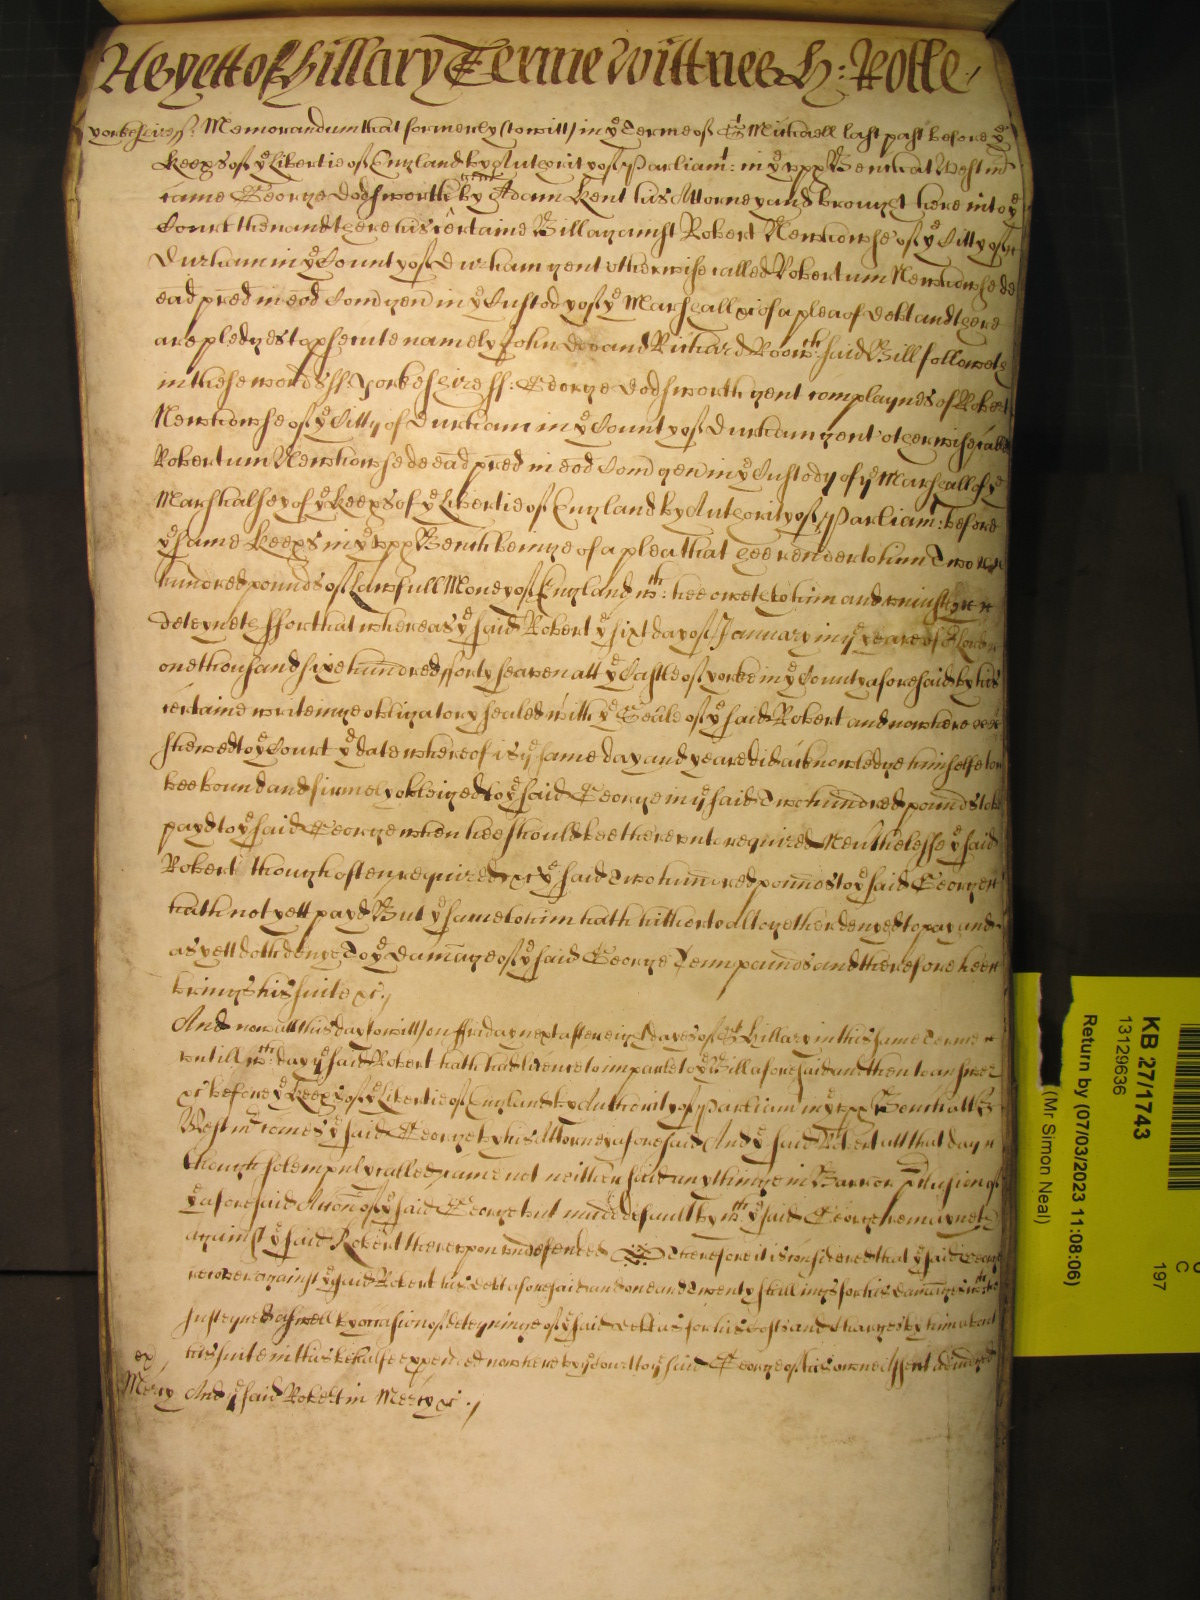 As yett of Hillary Terme Wittnes H: Rolle
Yorkeshire ss: Memorandum that formerly (to witt) in ye Terme of St Michaell last past before ye
Keeps of ye Libertie of England by Authority of Parliamt: in ye upp Bench at Westmr
came George Dodsworth gent by Adam Kent his Attorney and brought here into ye
Court then and there his certaine Bill against Robert Newhowse of ye Citty of
Durham in ye County of Durham gent otherwise called Robertum Newhowse de
ead pred in eod Com gen in ye Custody of ye Marshall &c of a plea of debt and there
are pledges to psecute namely John Doe and Richard Roo wch: said Bill followeth
in these words ss: Yorkeshire ss: George Dodsworth gent complaynes of Robert
Newhowse of ye Citty of Durham in ye County of Durham gent otherwise called
Robertum Newhowse de ead pred in eod Com gen in ye Custody of ye Marshall of ye
Marshalsey of ye Keeps of ye Libertie of England by Authority of Parliamt: before
ye same Keeps in ye upp Bench beinge of a plea that hee render to him Two
hundred pounds of lawfull Money of England wch: hee oweth to him and uniustly
deteyneth ffor that whereas ye said Robert ye sixt day of January in ye yeare of or Lord
one thousand sixe hundred fforty seaven att ye Castle of yorke in ye County aforesaid by his
certaine writeinge obligatory sealed with ye Seale of ye said Robert and now here
shewed to ye Court ye date whereof is ye same day and yeare did acknowledge himselfe to
bee bound and firmely obleiged to ye said George in ye said Two hundred pounds to be
payd to ye said George when hee should bee thereunto required Neuthelesse ye said
Robert though often required &c ye said Two hundred pounds to ye said George
hath not yett payd But ye same to him hath hitherto altogether denyed to pay and
as yett doth denye To ye damage of ye said George Tenn pounds and therefore hee
brings his suite &c
And now att this day (to witt) on ffriday next after eight dayes of St Hillary in this same Terme
untill wch: day ye said Robert hath had licence to imparle to ye Bill aforesaid and then to answer
&c before ye Keeps of ye Libertie of England by Authority of Parliamt in ye upp Bench att
Westmr comes ye said George by his Attorney aforesaid And ye said Robert att that day
though solempnly called came not neither said any thinge in Barr or pclusion of
ye aforesaid Accon of ye said George but made default by wch ye said George remayneth
against ye said Robert thereupon undefended Therefore it is considered that ye said George
recover against ye said Robert his debt aforesaid and one and twenty shillings for his damages wch hee
susteyned aswell by occasion of deteyninge of ye said debt as for his Costs and Charges by him about
his suite in this behalfe expended now here by ye Court to ye said George of his owne assent adiudged
ex
Mercy And ye said Robert in Mercy &c
KB 27/1743
13129636
Return by (07/03/2023 11:08:06)
(Mr Simon Neal)
C
197